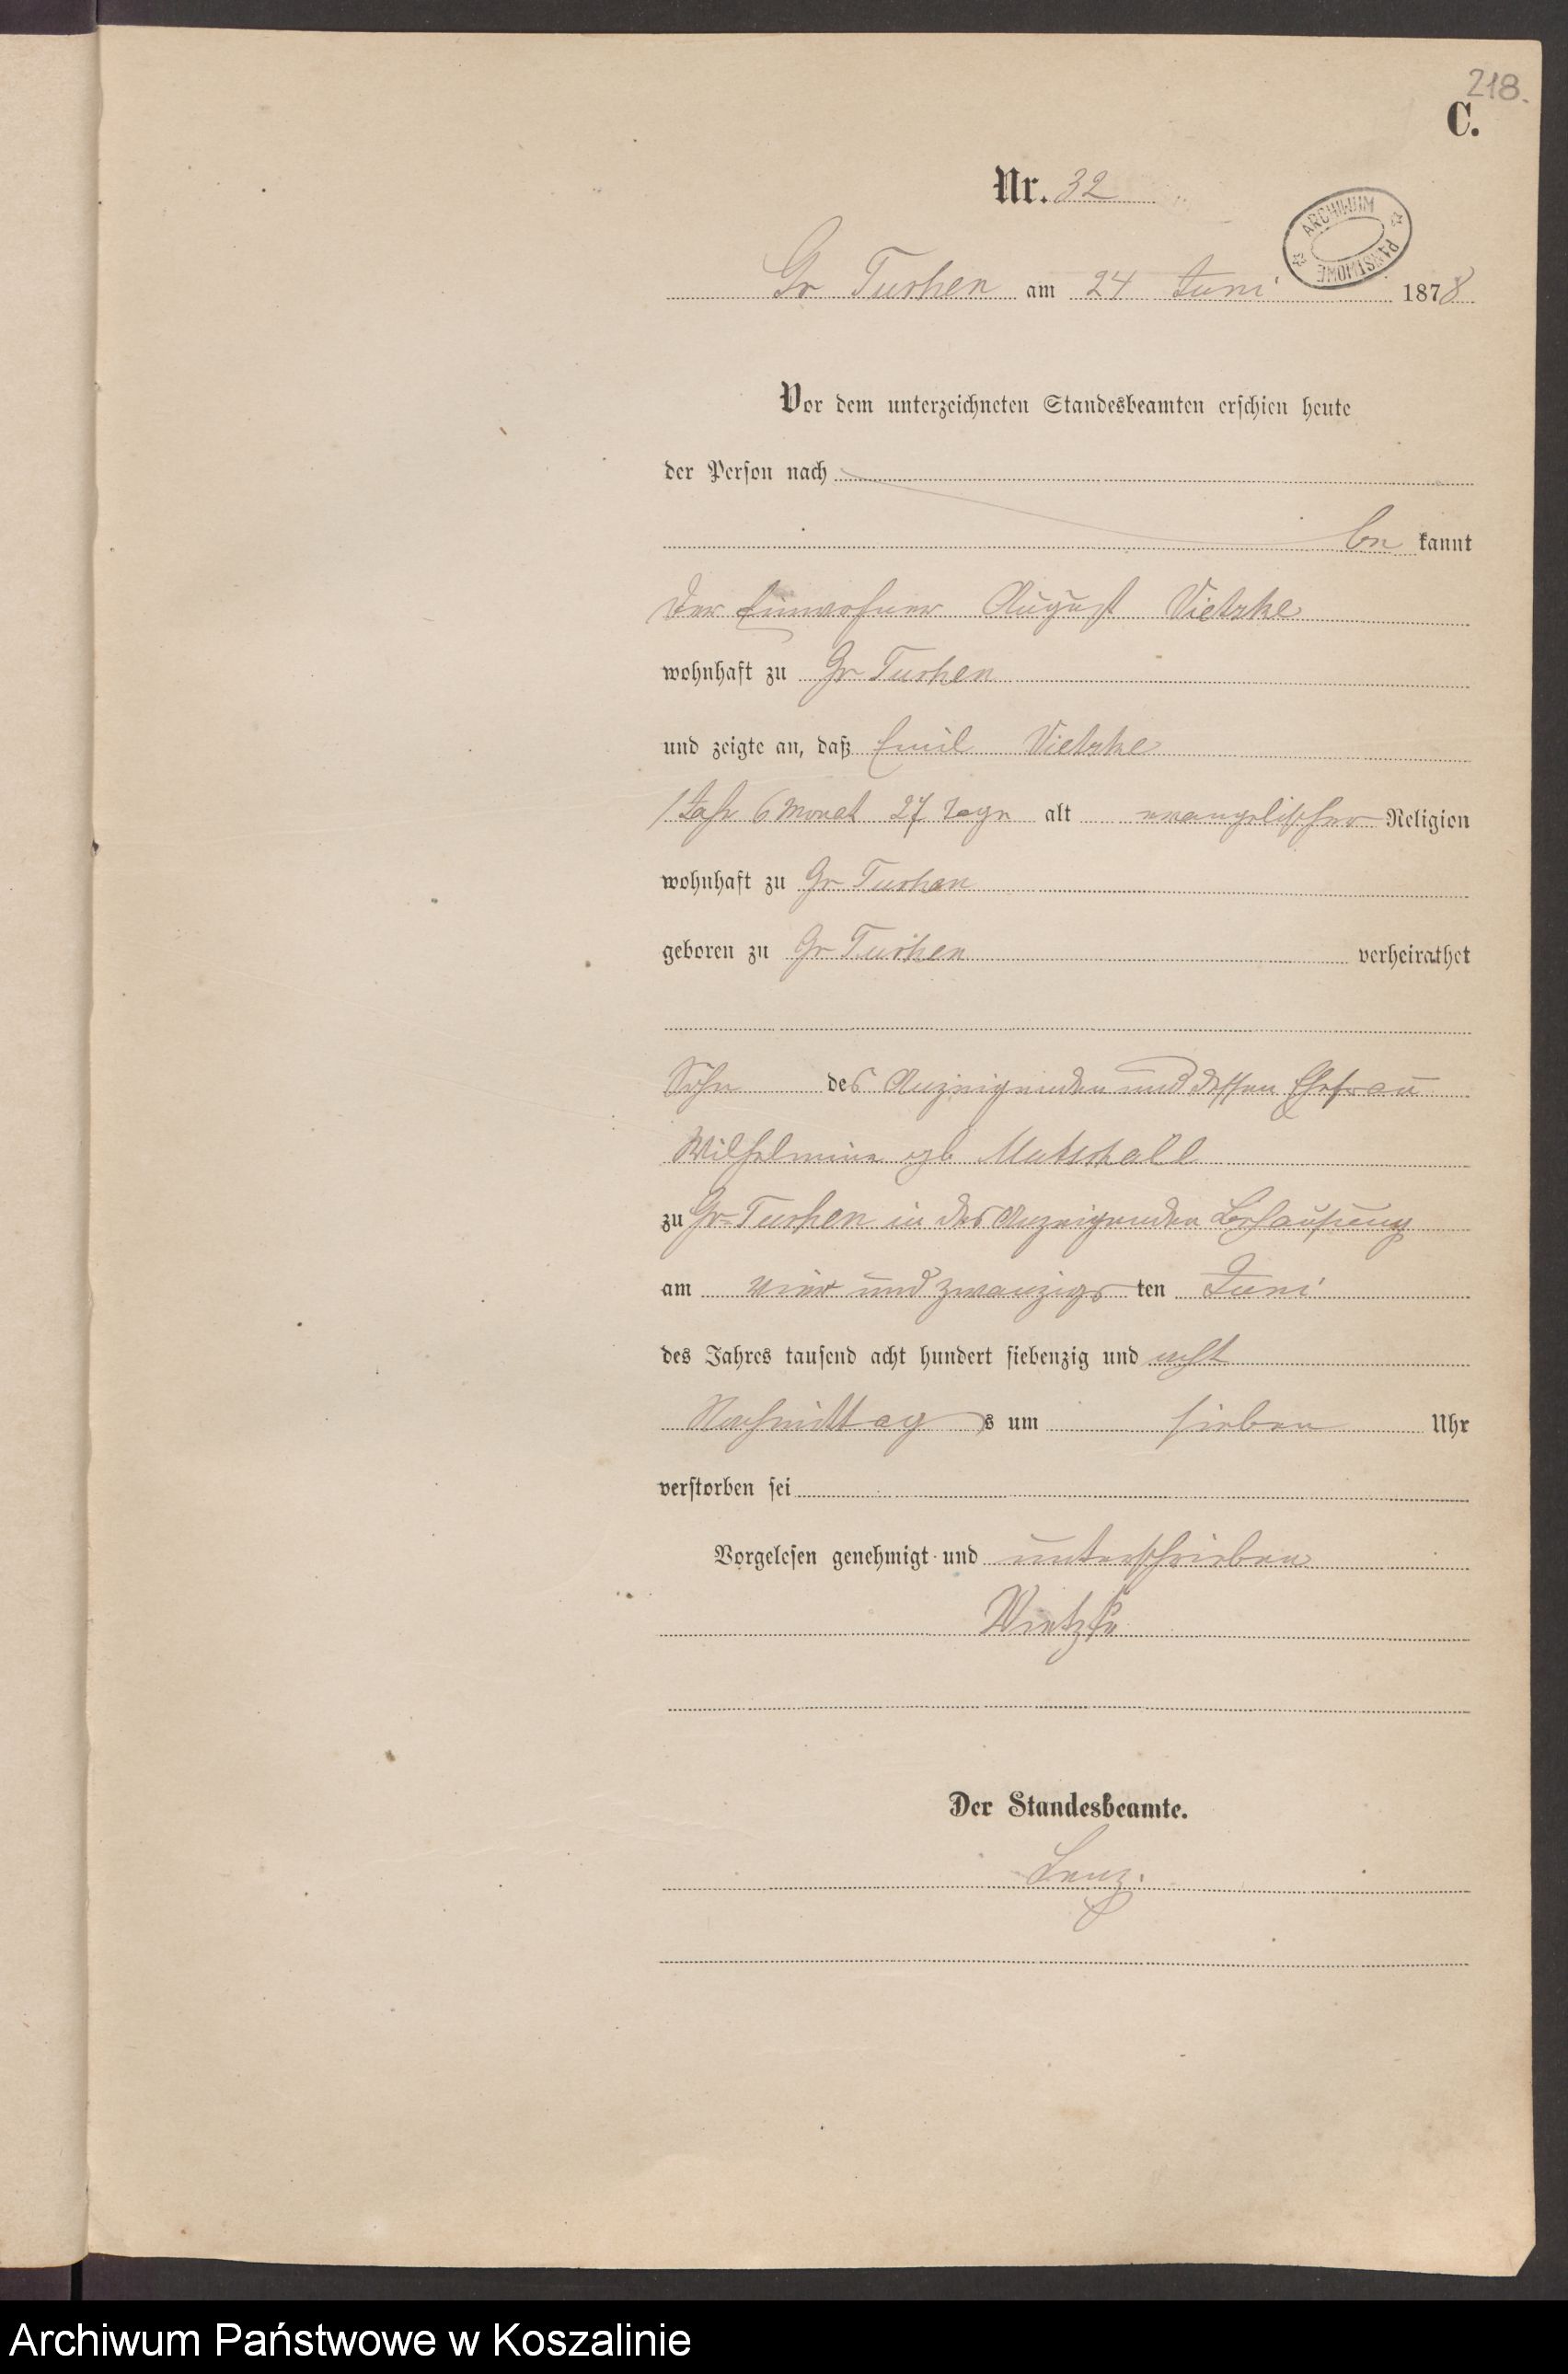 218.
C.
Nr. 32
ARCHIWUM PAŃSTWOWE
Gr Tuchen am 24 Juni 1878
Vor dem unterzeichneten Standesbeamten erschien heute
der Person nach
be kannt
der Einwohner August Vietzke
wohnhaft zu Gr Tuchen
und zeigte an, daß Emil Vietzke
1 Jahr 6 Monat 27 Tage alt evangelischer Religion
wohnhaft zu Gr Tuchen
geboren zu Gr Tuchen verheirathet
Sohn des Anzeigenden und dessen Ehefrau
Wilhelmine geb
zu Gr-Tuchen in des Anzeigenden Behausung
am vier und zwanzigs ten Juni
des Jahres tausend acht hundert siebenzig und acht
Nachmittag s um sieben Uhr
verstorben sei
Vorgelesen genehmigt und unterschrieben
Vietzke
Der Standesbeamte.
Lenz.
Archiwum Państwowe w Koszalinie